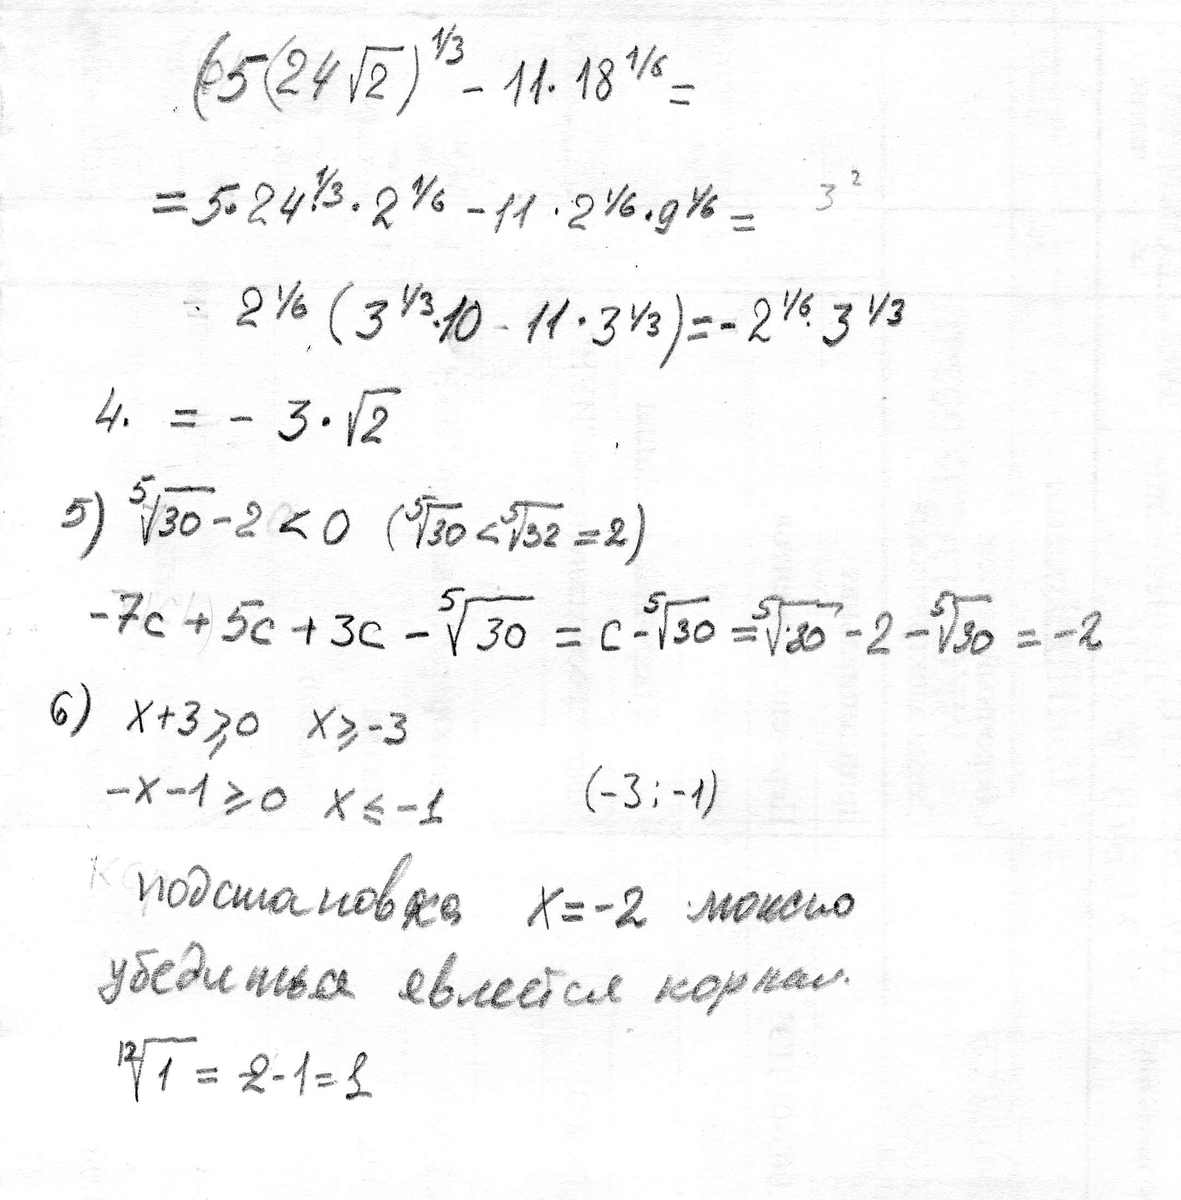 (5(24√2)^1/3 - 11·18^1/6 =
= 5·24^1/3·2^1/6 - 11·2^1/6·9^1/6 = 3²
2^1/6 (3^1/3·10 - 11·3^1/3) = -2^1/6·3^1/3
4. = - 3·√2
5) ⁵√30 - 2 < 0 (⁵√30 < ⁵√32 = 2)
-7c + 5c + 3c - ⁵√30 = c - ⁵√30 = ⁵√30 - 2 - ⁵√30 = -2
6) x+3 ≥ 0 x ≥ -3
-x-1 ≥ 0 x ≤ -1 (-3; -1)
подстановка x = -2 можно
убедиться явлется корнем.
¹²√1 = 2-1 = 1